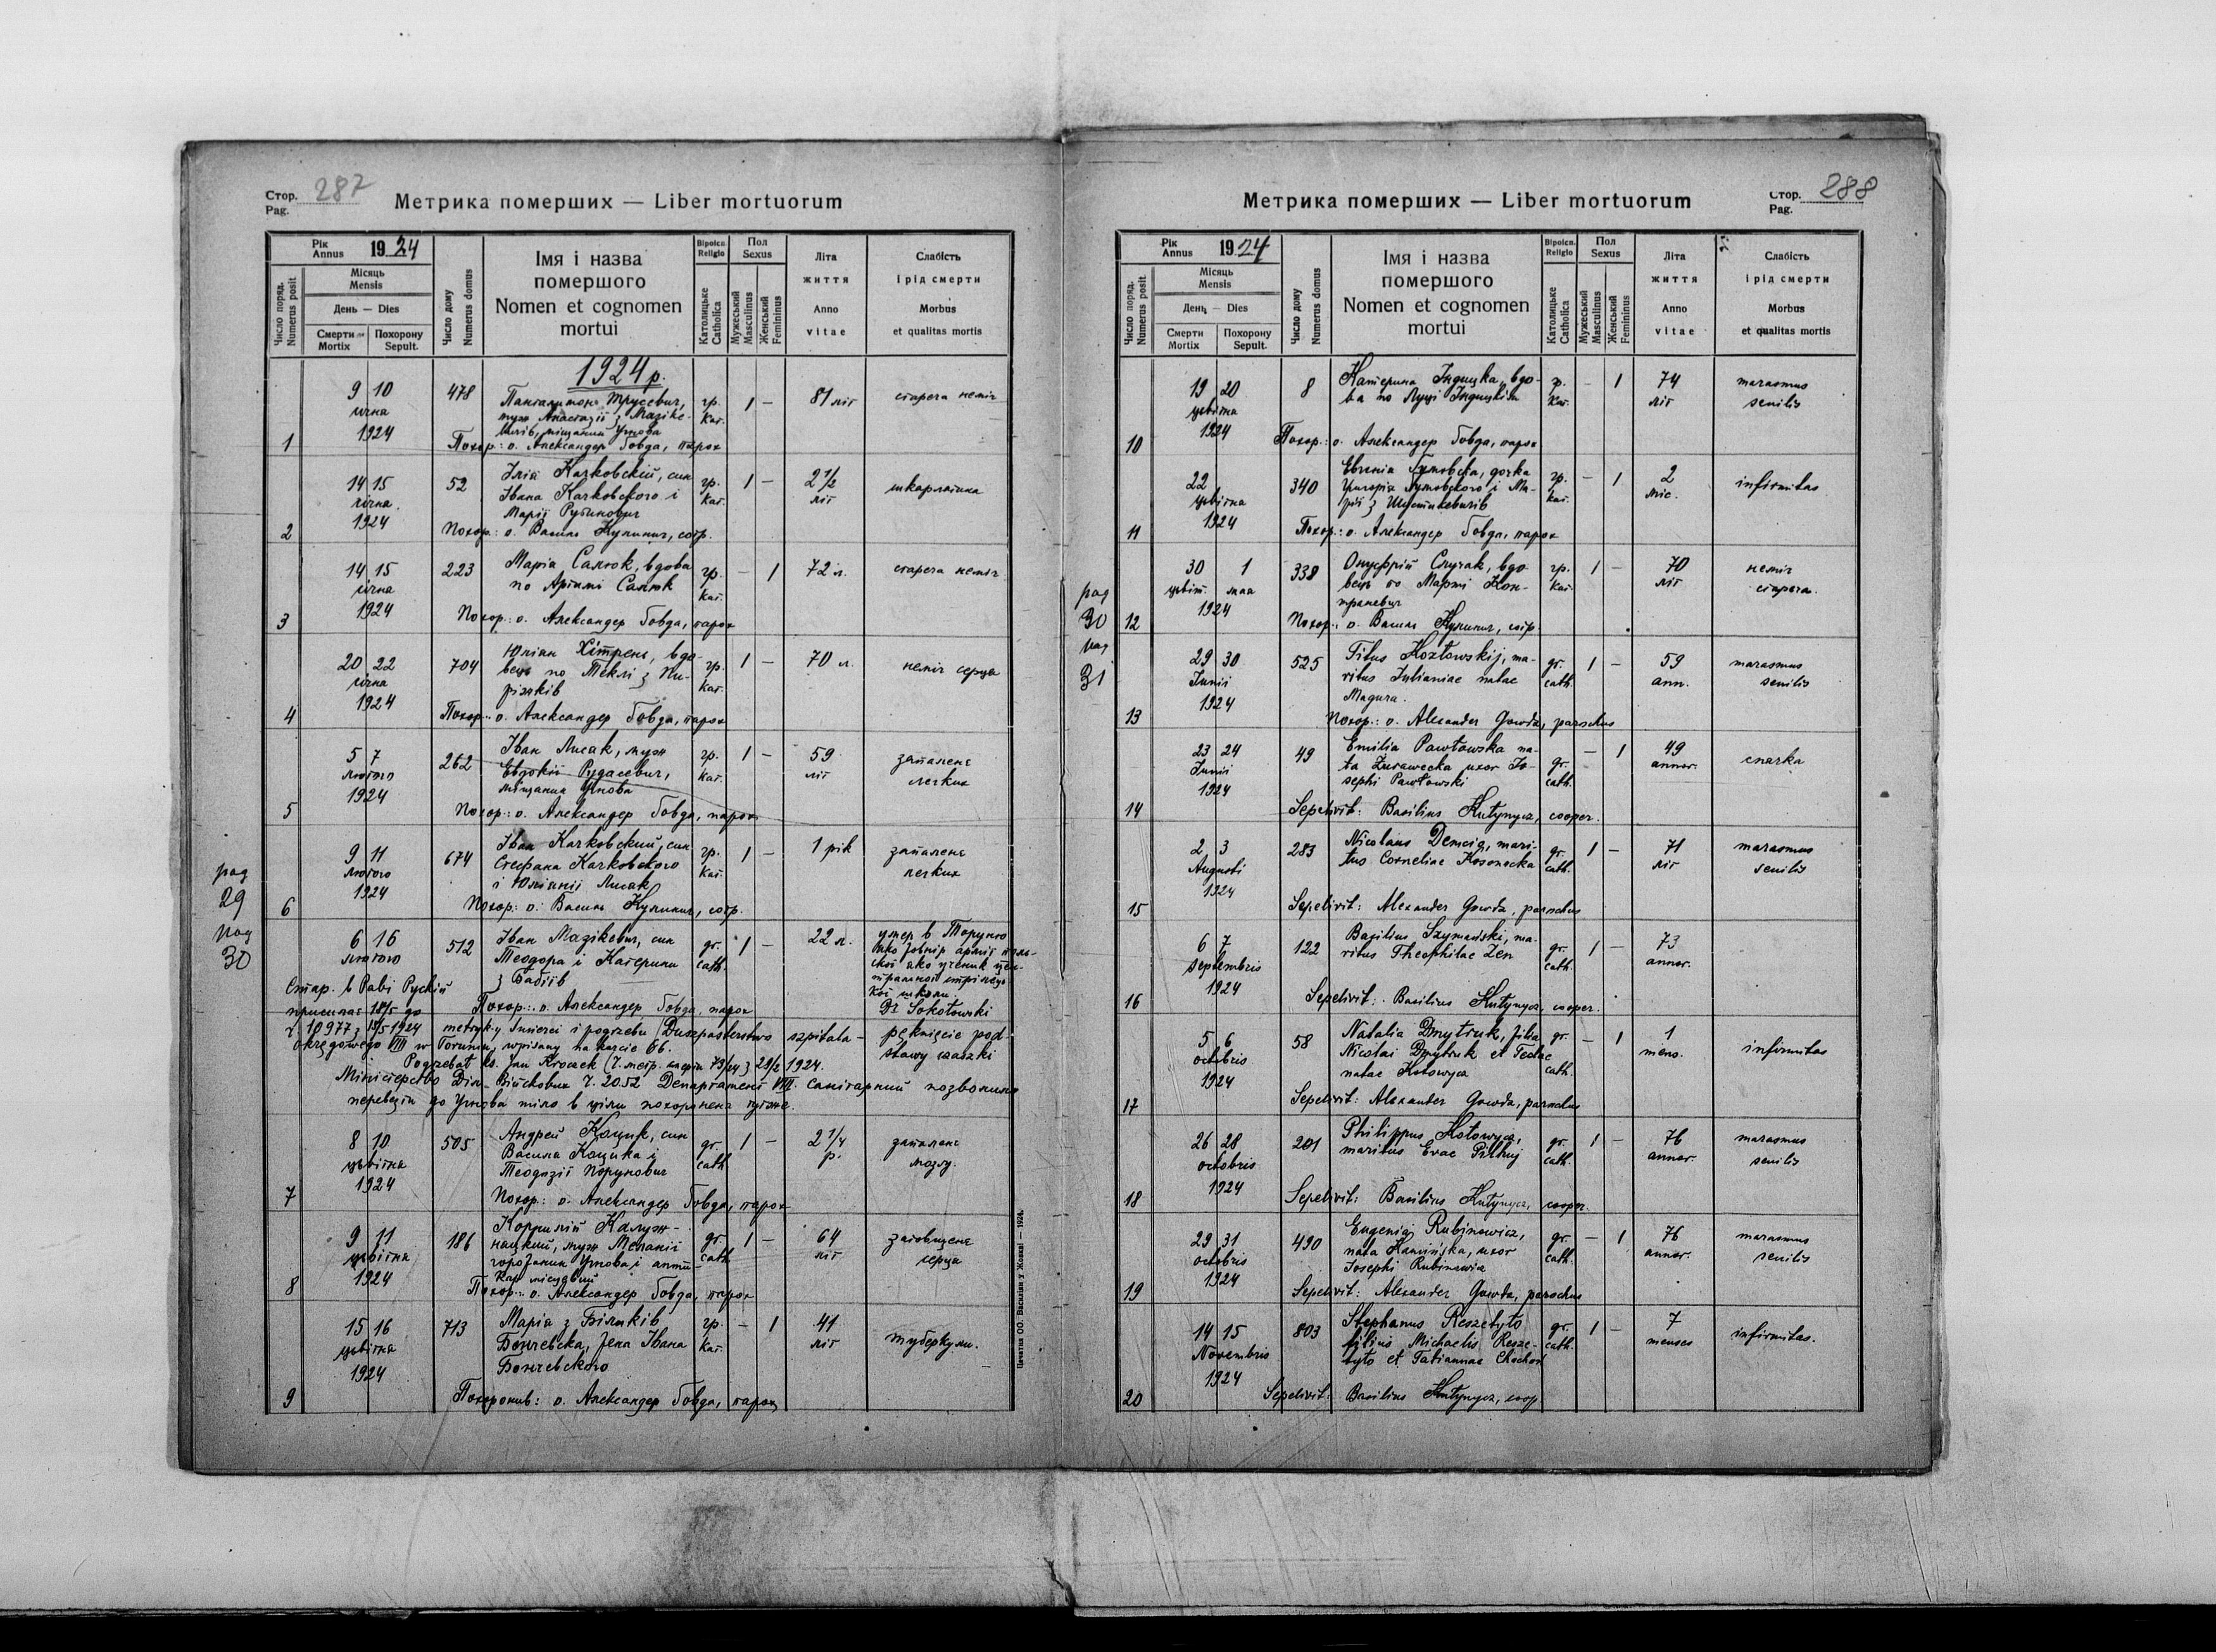 Стор. 287
Pag.
Метрика померших — Liber mortuorum
Рік
Annus 1924
Місяць
Mensis
День — Dies
Смерти
Mortix
Похорону
Sepult.
Число поряд.
Numerus posit.
Число дому
Numerus domus
Імя і назва
помершого
Nomen et cognomen
mortui
Віроісп.
Religio
Католицьке
Catholica
Пол
Sexus
Мужеський
Masculinus
Женський
Femininus
Літа
життя
Anno
vitae
Слабість
і рід смерти
Morbus
et qualitas mortis
1924 р.
9 10 478
січня
1924
муж Анастазії з
міщанин Угнова
гр. кат. 1 — 81 літ стареча неміч
1 Похор: о. Александер Говда, парох
14 15 52 Ілія Качковский, син гр. 1 — 2 1/2 шкарлатина
січня Івана Качковского і кат. літ
1924 Марії Рубинович
2 Похор: о. Василь Кулинич, сотр.
14 15 223 Марія Салюк, вдова гр. — 1 72 л. стареча неміч
січня по Артимі Салюк кат.
1924
3 Похор: о. Александер Говда, парох
20 22 704 Юліан вдо- гр. 1 — 70 л. неміч серця
січня вець по Теклі з кат.
1924
4 Похор: о. Александер Говда, парох
5 7 262 Іван Лисак, муж гр. 1 — 59 запаленє
лютого Евдокії Рудасевич, кат. літ легких
1924 міщанин Угнова
5 Похор: о. Александер Говда, парох
9 11 674 Іван Качковский, син гр. 1 — 1 рік запаленє
лютого Стефана Качковского кат. легких
1924 і Юліянії Лисак
6 Похор: о. Василь Кулинич, сотр.
29
30
6 16 512 Іван Мазікевич, син gr. 1 — 22 л. умер в Торуню
лютого Теодора і Катерини cath. яко
з Бабіїв
Стар. в Раві Рускій
Похор: о. Александер Говда, парох Dr Sokołowski
ч. 10977 з 18/5 1924 metryk-y śmierci i pogrzebu (Duszpasterstwo szpitala - pęknięcie pod-
okręgowego VIII w Toruniu, wpisany na karcie 66. stawy czaszki
Pogrzebał ks. Jan Kroczek 1924.
Міністерство Військових Ч. 2052 Департамент VIII. санітарний позволило
перевезти до Угнова тіло в ціли похоронена
8 10 505 Андрей Коцик, син gr. 1 — 2 1/4 запаленє
цьвітня Василя Коцика і cath р. мозгу.
1924 Теодозії
7 Похор: о. Александер Говда, парох
9 11 186 gr. 1 — 64
цьвітня муж Меланії cath літ серця
1924 Угнова і апти-
кар місцевий
8 Похор: о. Александер Говда, парох
15 16 713 Марія з Біликів гр. — 1 41 туберкули.
цьвітня жена Івана кат. літ
1924
9 Похоронив: о. Александер Говда, парох
Печатня ОО. Василіян у Жовкві — 1924.
Стор. 288
Pag.
Метрика померших — Liber mortuorum
Рік
Annus 1924
Місяць
Mensis
День — Dies
Смерти
Mortix
Похорону
Sepult.
Число поряд.
Numerus posit.
Число дому
Numerus domus
Імя і назва
помершого
Nomen et cognomen
mortui
Віроісп.
Religio
Католицьке
Catholica
Пол
Sexus
Мужеський
Masculinus
Женський
Femininus
Літа
життя
Anno
vitae
Слабість
і рід смерти
Morbus
et qualitas mortis
19 20 8 Катерина Індицка, вдо- гр. — 1 74 marasmus
цьвітня ва по Луці кат. літ senilis
1924
10 Похор: о. Александер Говда, парох
22 340 Евгенія дочка гр. — 1 2 infirmitas
цьвітня Григорія і Ма- кат. міс.
1924 рії з
11 Похор: о. Александер Говда, парох
30
31
30 1 338 Онуфрій вдо- гр. 1 — 70 неміч
цьвіт. мая вець по Кон- кат. літ стареча
1924
12 Похор: о. Василь Кулинич, сотр.
29 30 525 Titus Kozłowskij, ma- gr. 1 — 59 marasmus
Junii ritus Julianiae natae cath. ann. senilis
1924 Magura.
13 Похор.: о. Alexander Gowda, parochus
23 24 49 Emilia Pawłowska na- gr. — 1 49
Junii ta Żurawecka uxor Jo- cath. annor.
1924 sephi Pawłowski
14 Sepelivit: Basilius Kułynycz, cooper.
2 3 283 Nicolaus mari- gr. 1 — 71 marasmus
Augusti tus Corneliae cath. літ senilis
1924
15 Sepelivit: Alexander Gowda, parochus
6 7 122 Basilius Szymański, ma- gr. 1 — 73
Septembris ritus Theophilae Zen cath. annor.
1924
16 Sepelivit: Basilius Kułynycz, cooper.
5 6 58 Natalia Dmytruk, filia gr. — 1 1 infirmitas
octobris Nicolai Dmytruk et Teclae cath. mens.
1924 natae Kotowycz
17 Sepelivit: Alexander Gowda, parochus
26 28 201 Philippus Kotowycz, gr. 1 — 76 marasmus
octobris maritus Evae cath. annor. senilis
1924
18 Sepelivit: Basilius Kułynycz, cooper.
29 31 490 Eugenia Rubinowicz, gr. — 1 76 marasmus
octobris nata Kamińska, uxor cath. annor. senilis
1924 Josephi Rubinowicz
19 Sepelivit: Alexander Gowda, parochus
14 15 803 Stephanus Reszetyło gr. 1 — 7 infirmitas.
Novembris filius Michaelis Resze- cath. menses
1924 tyło et Tatiannae
20 Sepelivit: Basilius Kułynycz, coop.